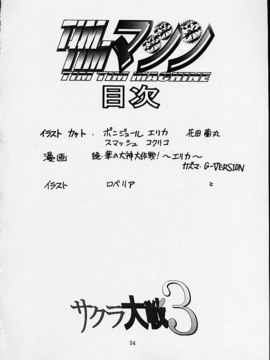 TIM
TIM マシン
TIM TIM MACHINE
目次
イラスト カット・ ボンジュール エリカ 花田 菊丸
スマッシュ コクリコ
漫画 続・華の大神大作戦! 〜エリカ〜
カズマ・G-VERSION
イラスト ロベリア 〃
サクラ大戦3
04